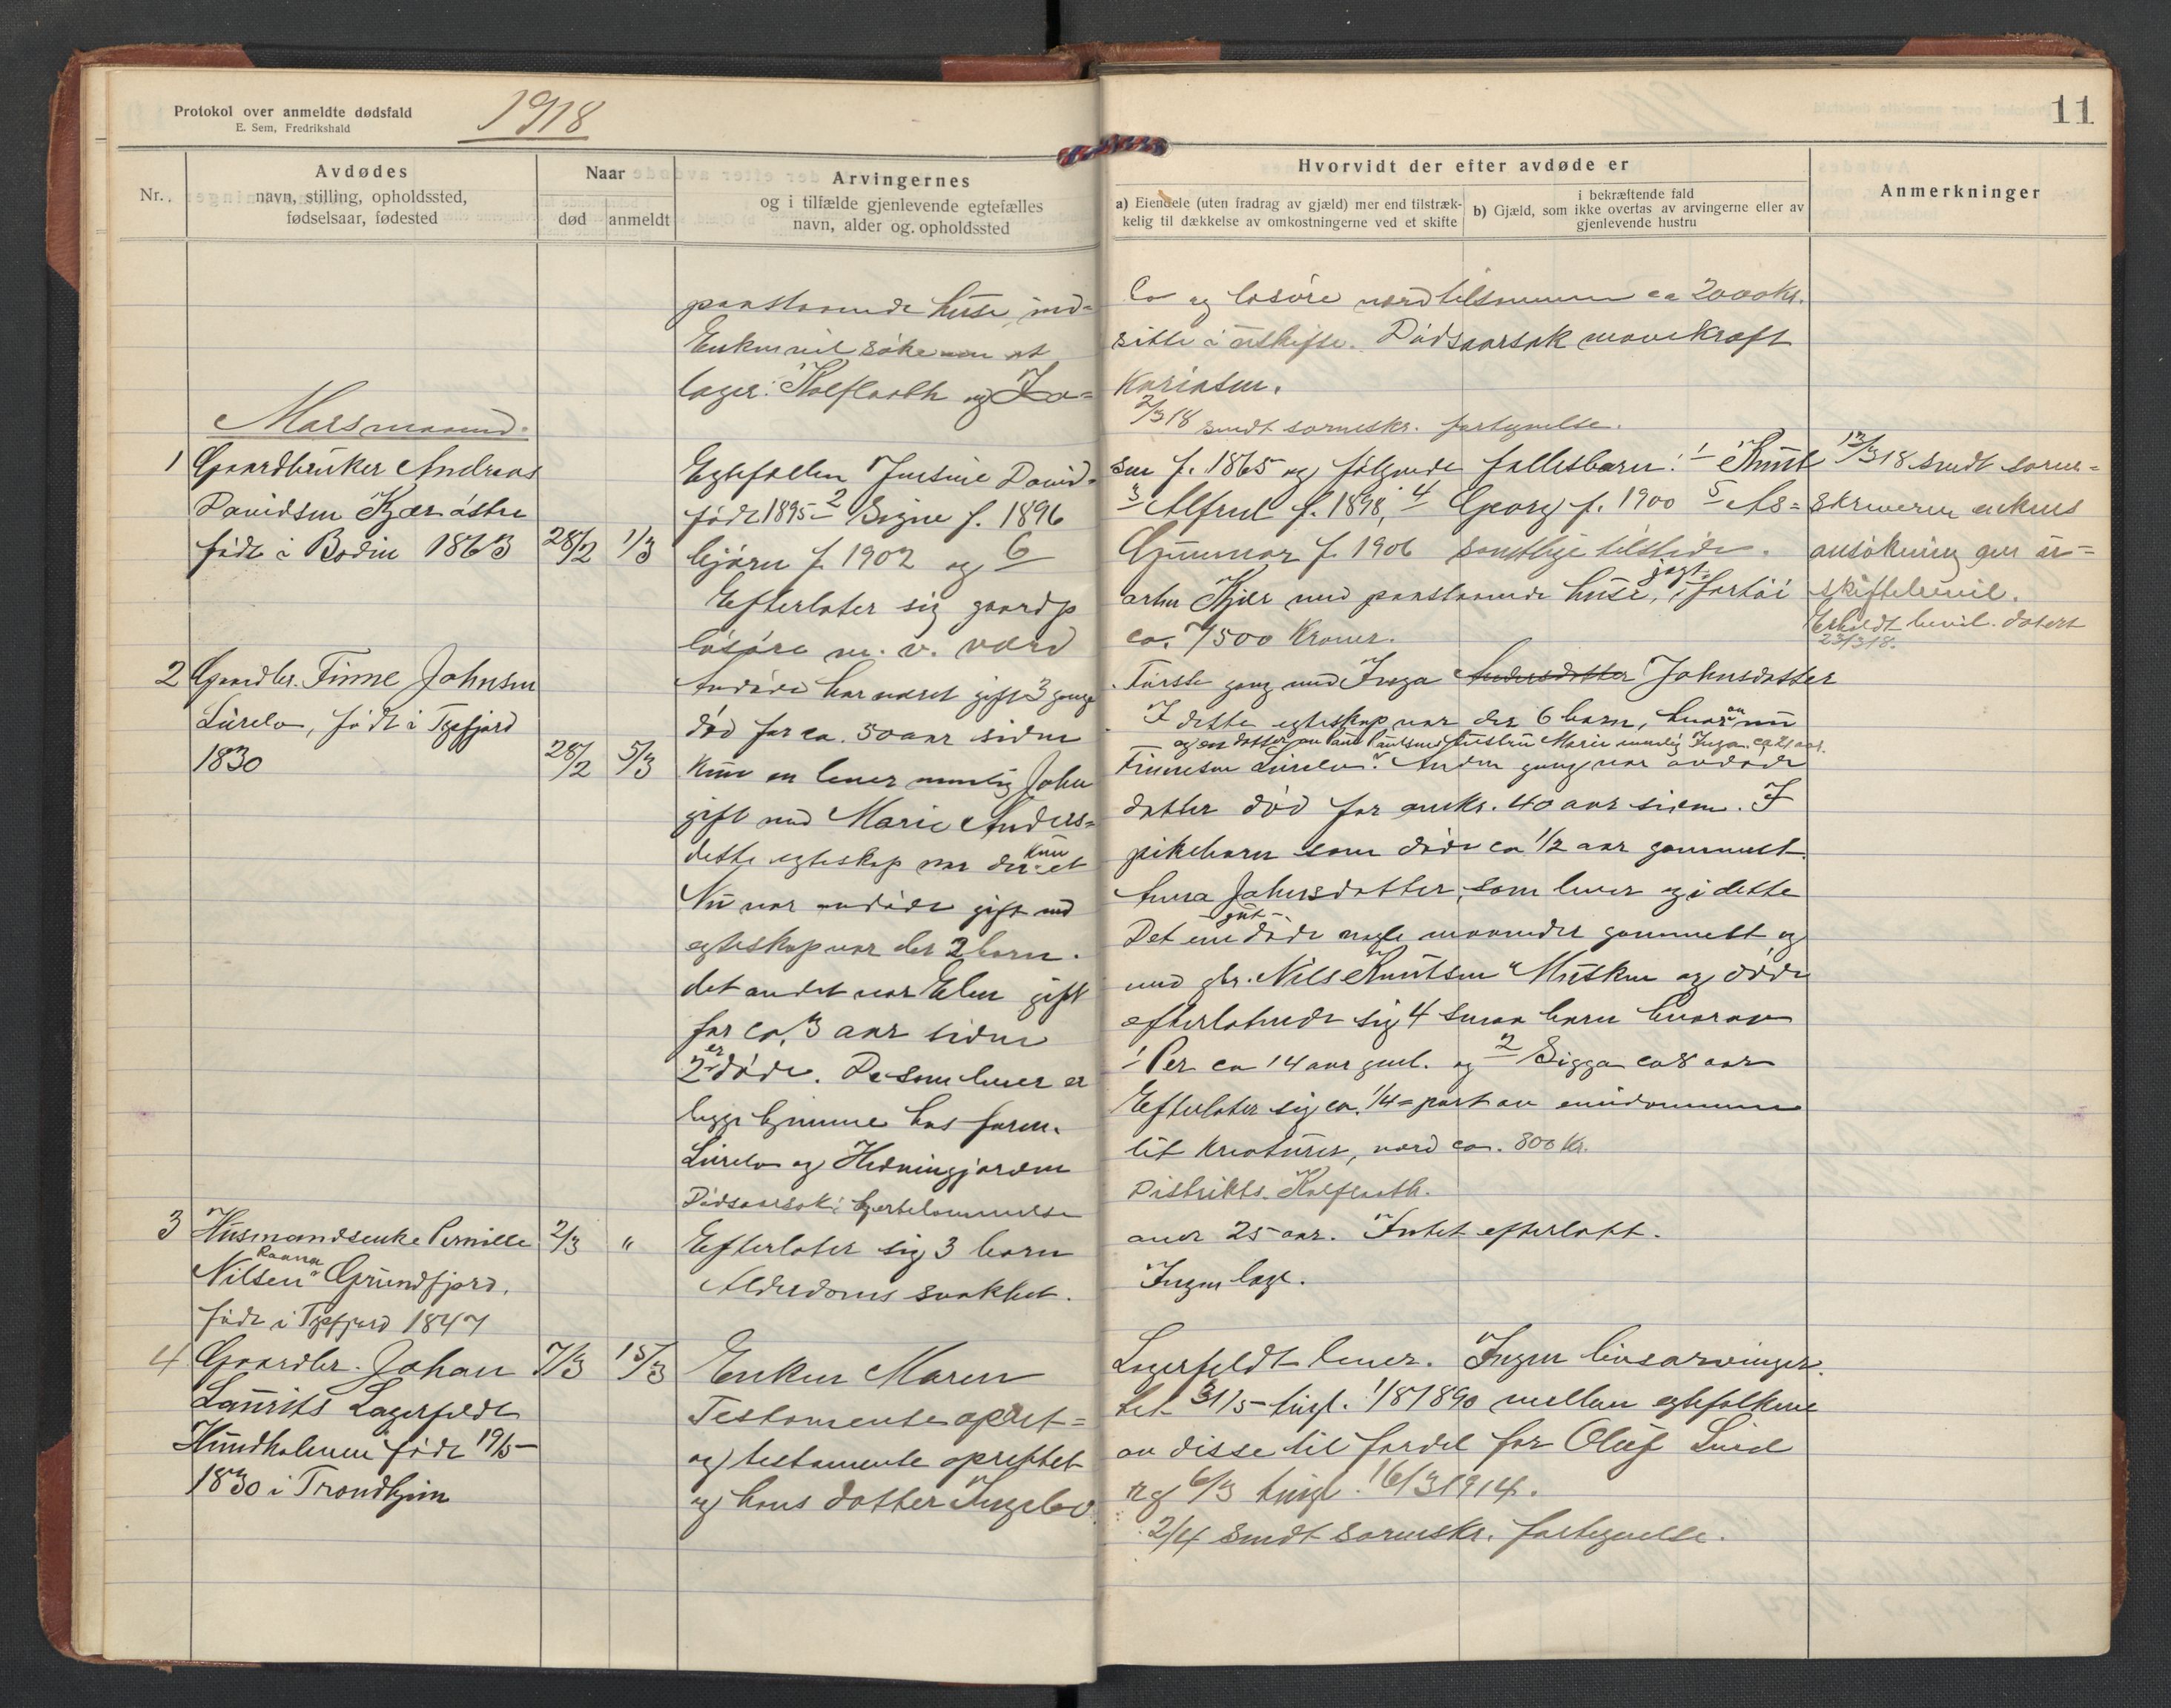 Protokol over anmeldte dødsfald
E. Sem, Fredrikshald
1918
11
Nr.
Avdødes
navn, stilling, opholdssted,
fødselsaar, fødested
Naar
død
anmeldt
Arvingernes
og i tilfælde gjenlevende egtefælles
navn, alder og opholdssted
Hvorvidt der efter avdøde er
a) Eiendele (uten fradrag av gjæld) mer end tilstræk-
kelig til dækkelse av omkostningerne ved et skifte
i bekræftende fald
b) Gjæld, som ikke overtas av arvingerne eller av
gjenlevende hustru
Anmerkninger
paastaaende huse, ind= bo og løsøre værd tilsammen ca 2000 kr.
Enken vil søke om at sitte i uskifte. Dødsaarsak mavekræft
læge: Kolflaath og Za= kariasen.
2/3 18 sendt sorenskr. fortegnelse.
Marsmaaned.
1 Gaardbruker Andreas
Davidsen Kjær østre
født i Bodin 1863 28/2 1/3
Egtefællen Jensine David= sen f. 1865 og følgende fællesbarn: 1 Knut
født 1895 2 Signe f. 1896 3 Alfred f. 1898, 4 Georg f. 1900 5 As=
bjørn f. 1902 og 6 Gunnar f. 1906 samtlige tilstede.
Efterlater sig gaardp arten Kjær med paastaaende huse, jagt, fartøi
løsøre m. v. værd ca. 7500 Kroner.
12/3 18 sendt soren=
skriveren enkens
ansøkning om u=
skiftebevil.
Erholdt bevil. datert
23/3 18.
2 Gaardbr. Finne Johnsen
Lurelv, født i Tysfjord
1830 28/2 5/3
Avdøde har været gift 3 gange Første gang med Inga Andersdatter Johnsdatter
død for ca. 50 aar siden I dette egteskap var der 6 barn, hvorav nu
og en datter av Paul Paulsens hustru Marie navnlig Inga ca 21 aar.
kun en lever navnlig John Finnesen Lurelv. Anden gang var avdøde
gift med Marie Anders= datter død for omkr. 40 aar siden. I
dette egteskap var der kun et pikebarn som døde ca 1/2 aar gammelt.
Nu var avdøde gift med Anna Johnsdatter, som lever og i dette
egteskap var der 2 barn. Det ene gut døde nogle maaneder gammelt og
det andet var Elen gift med gbr. Nils Knutsen Musken og døde
for ca. 3 aar siden efterlatende sig 4 smaa barn hvorav
2 er døde. De som lever er 1 Per ca 14 aar gml. og 2 Sigga ca 8 aar
begge hjemme hos faren. Efterlater sig ca. 1/4= part av eiendommene
Lurelv og Hedningjorden lit kreaturer, værd ca. 800 Kr.
Dødsaarsak: hjertelammelse Distrikts. Kolflaath.
3 Husmandsenke Pernille 2/3 "
Nilsen Raanna Grundfjord.
født i Tysfjord 1847
Efterlater sig 3 barn over 25 aar. Intet efterlatt.
Alderdoms svakhet. Ingen læge.
4 Gaardbr. Johan 7/3 15/3
Laurits Lagerfeldt
Hundholmen født 19/5
1830 i Trondhjem
Enken Maren Lagerfeldt lever. Ingen livsarvinger.
Testamente opret= tet 31/5 tingl. 1/8 1890 mellem egtefolkene
og testamente oprettet av disse til fordel for Oluf Lind
og hans datter Ingebo rg 6/3 tingl. 16/3 1914.
2/4 sendt sorenskr. fortegnelse.